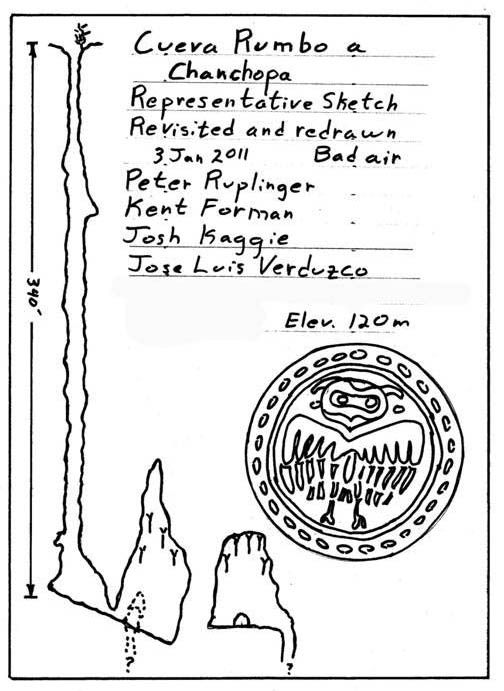 Cueva Rumbo a
Chanchopa
Representative Sketch
Revisited and redrawn
3 Jan 2011 Bad air
Peter Ruplinger
Kent Forman
Josh Kaggie
Jose Luis Verduzco
Elev. 120m
390'
?
?